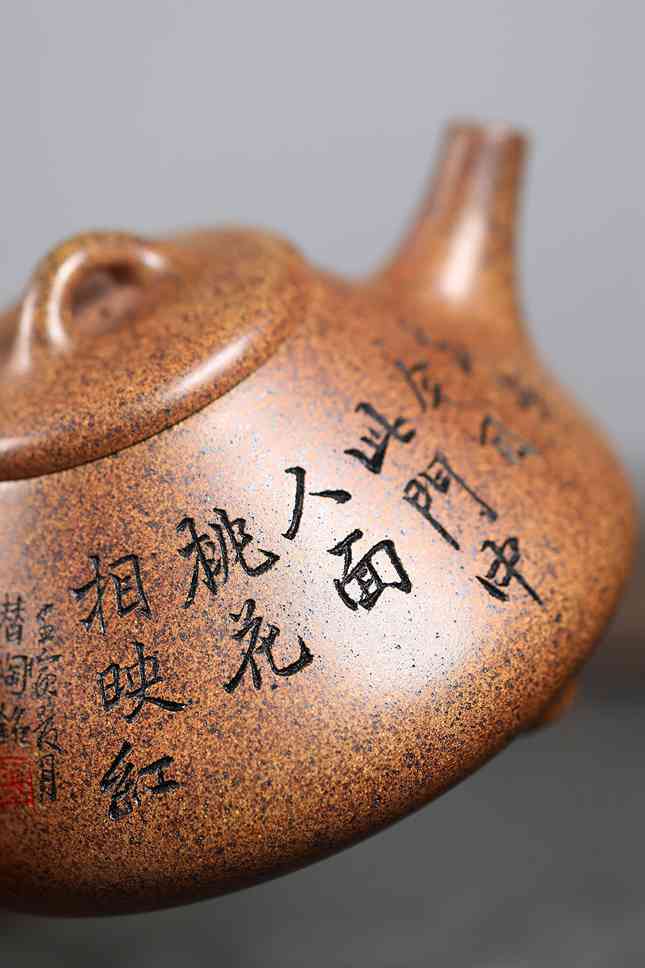 今日
此門中
人面
桃花
相映紅
壬寅夏月
陶銘